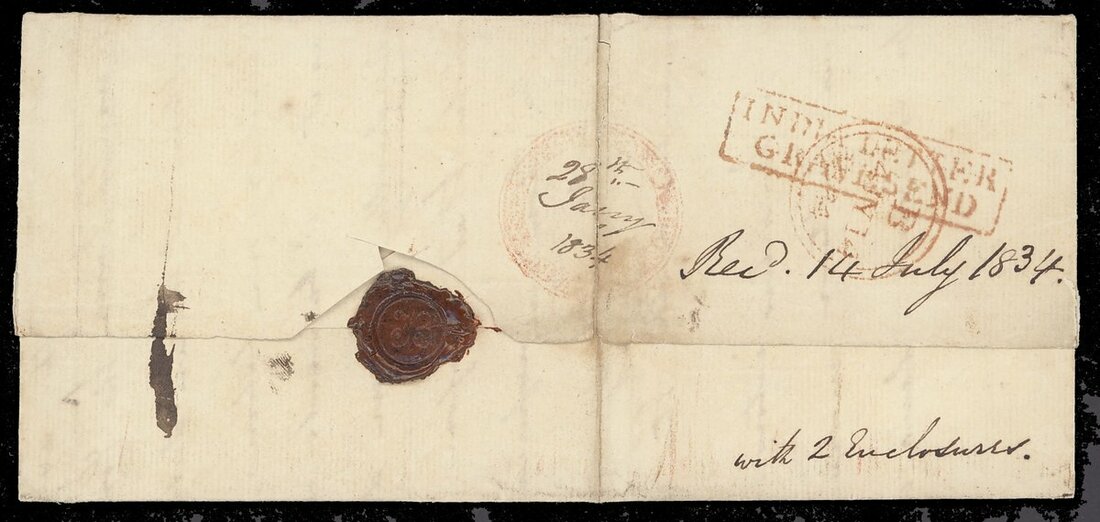 INDIA LETTER
GRAVESEND
28th
Jany
1834
Recd. 14 July 1834.
with 2 Enclosures.